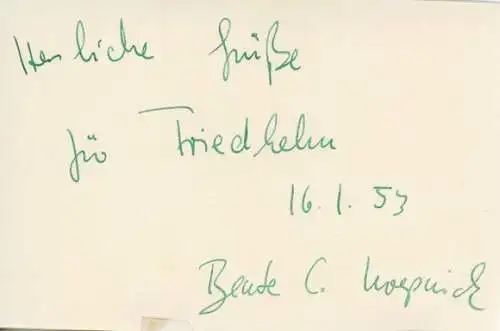 Herzliche Grüße
für Friedhelm
16.1.53
Beate C. Koepnick